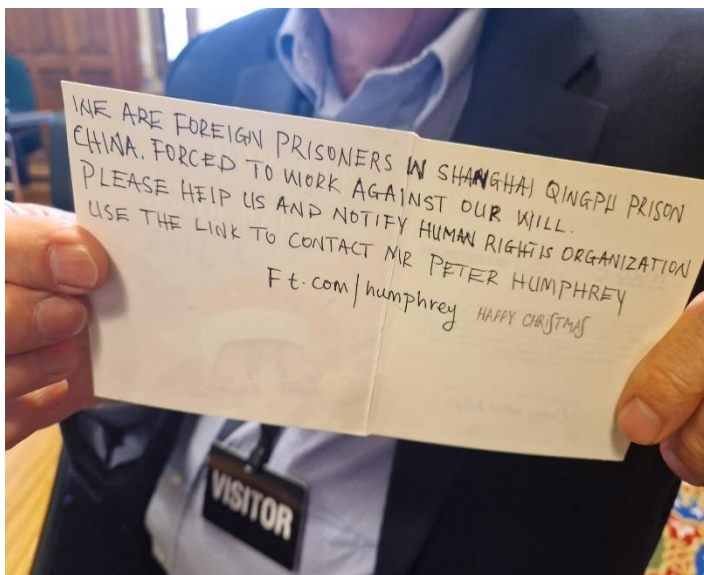 WE ARE FOREIGN PRISONERS IN SHANGHAI QINGPU PRISON
CHINA. FORCED TO WORK AGAINST OUR WILL.
PLEASE HELP US AND NOTIFY HUMAN RIGHTS ORGANIZATION
USE THE LINK TO CONTACT MR PETER HUMPHREY
Ft.com/humphrey HAPPY CHRISTMAS
VISITOR